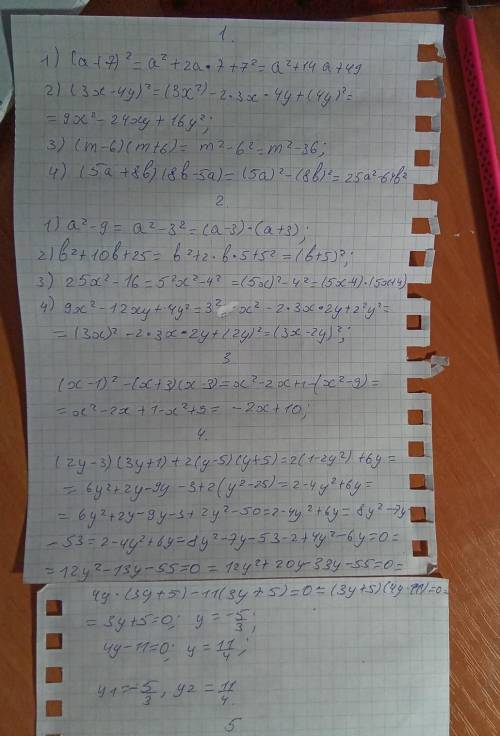 1.
1) (a+7)² = a² + 2a•7 + 7² = a² + 14a + 49
2) (3x-4y)² = (3x²) - 2•3x•4y + (4y)² =
= 9x² - 24xy + 16y²;
3) (m-6)(m+6) = m² - 6² = m² - 36;
4) (5a+8b)(8b-5a) = (5a)² - (8b)² = 25a² - 64b²
2.
1) a² - 9 = a² - 3² = (a-3)•(a+3);
2) b² + 10b + 25 = b² + 2•b•5 + 5² = (b+5)²;
3) 25x² - 16 = 5²x² - 4² = (5x)² - 4² = (5x-4)•(5x+4)
4) 9x² - 12xy + 4y² = 3² x² - 2•3x•2y + 2²y² =
= (3x)² - 2•3x•2y + (2y)² = (3x-2y)²;
3
(x-1)² - (x+3)(x-3) = x² - 2x + 1 - (x²-9) =
= x² - 2x + 1 - x² + 9 = -2x + 10;
4.
(2y-3)(3y+1) + 2(y-5)(y+5) = 2(1-2y²) + 6y =
= 6y² + 2y - 9y - 3 + 2(y²-25) = 2 - 4y² + 6y =
= 6y² + 2y - 9y - 3 + 2y² - 50 = 2 - 4y² + 6y = 8y² - 7y
- 53 = 2 - 4y² + 6y = 8y² - 7y - 53 - 2 + 4y² - 6y = 0 =
= 12y² - 13y - 55 = 0 = 12y² + 20y - 33y - 55 = 0 =
4y•(3y+5) - 11(3y+5) = 0 = (3y+5)(4y-11) = 0 =
= 3y+5 = 0; y = -5/3;
4y-11 = 0; y = 11/4;
y1 = -5/3, y2 = 11/4.
5